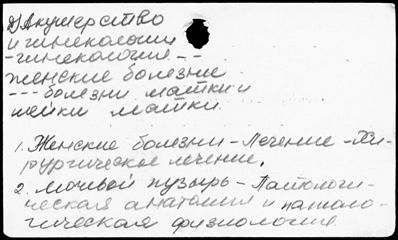 Акушерство
и гинекология
-гинекология--
женские болезни
---болезни матки и
шейки матки
1. Женские болезни-Лечение-Хи-
рургическое лечение.
2. Мочевой пузырь-Патологи-
ческая анатомия и патоло-
гическая физиология